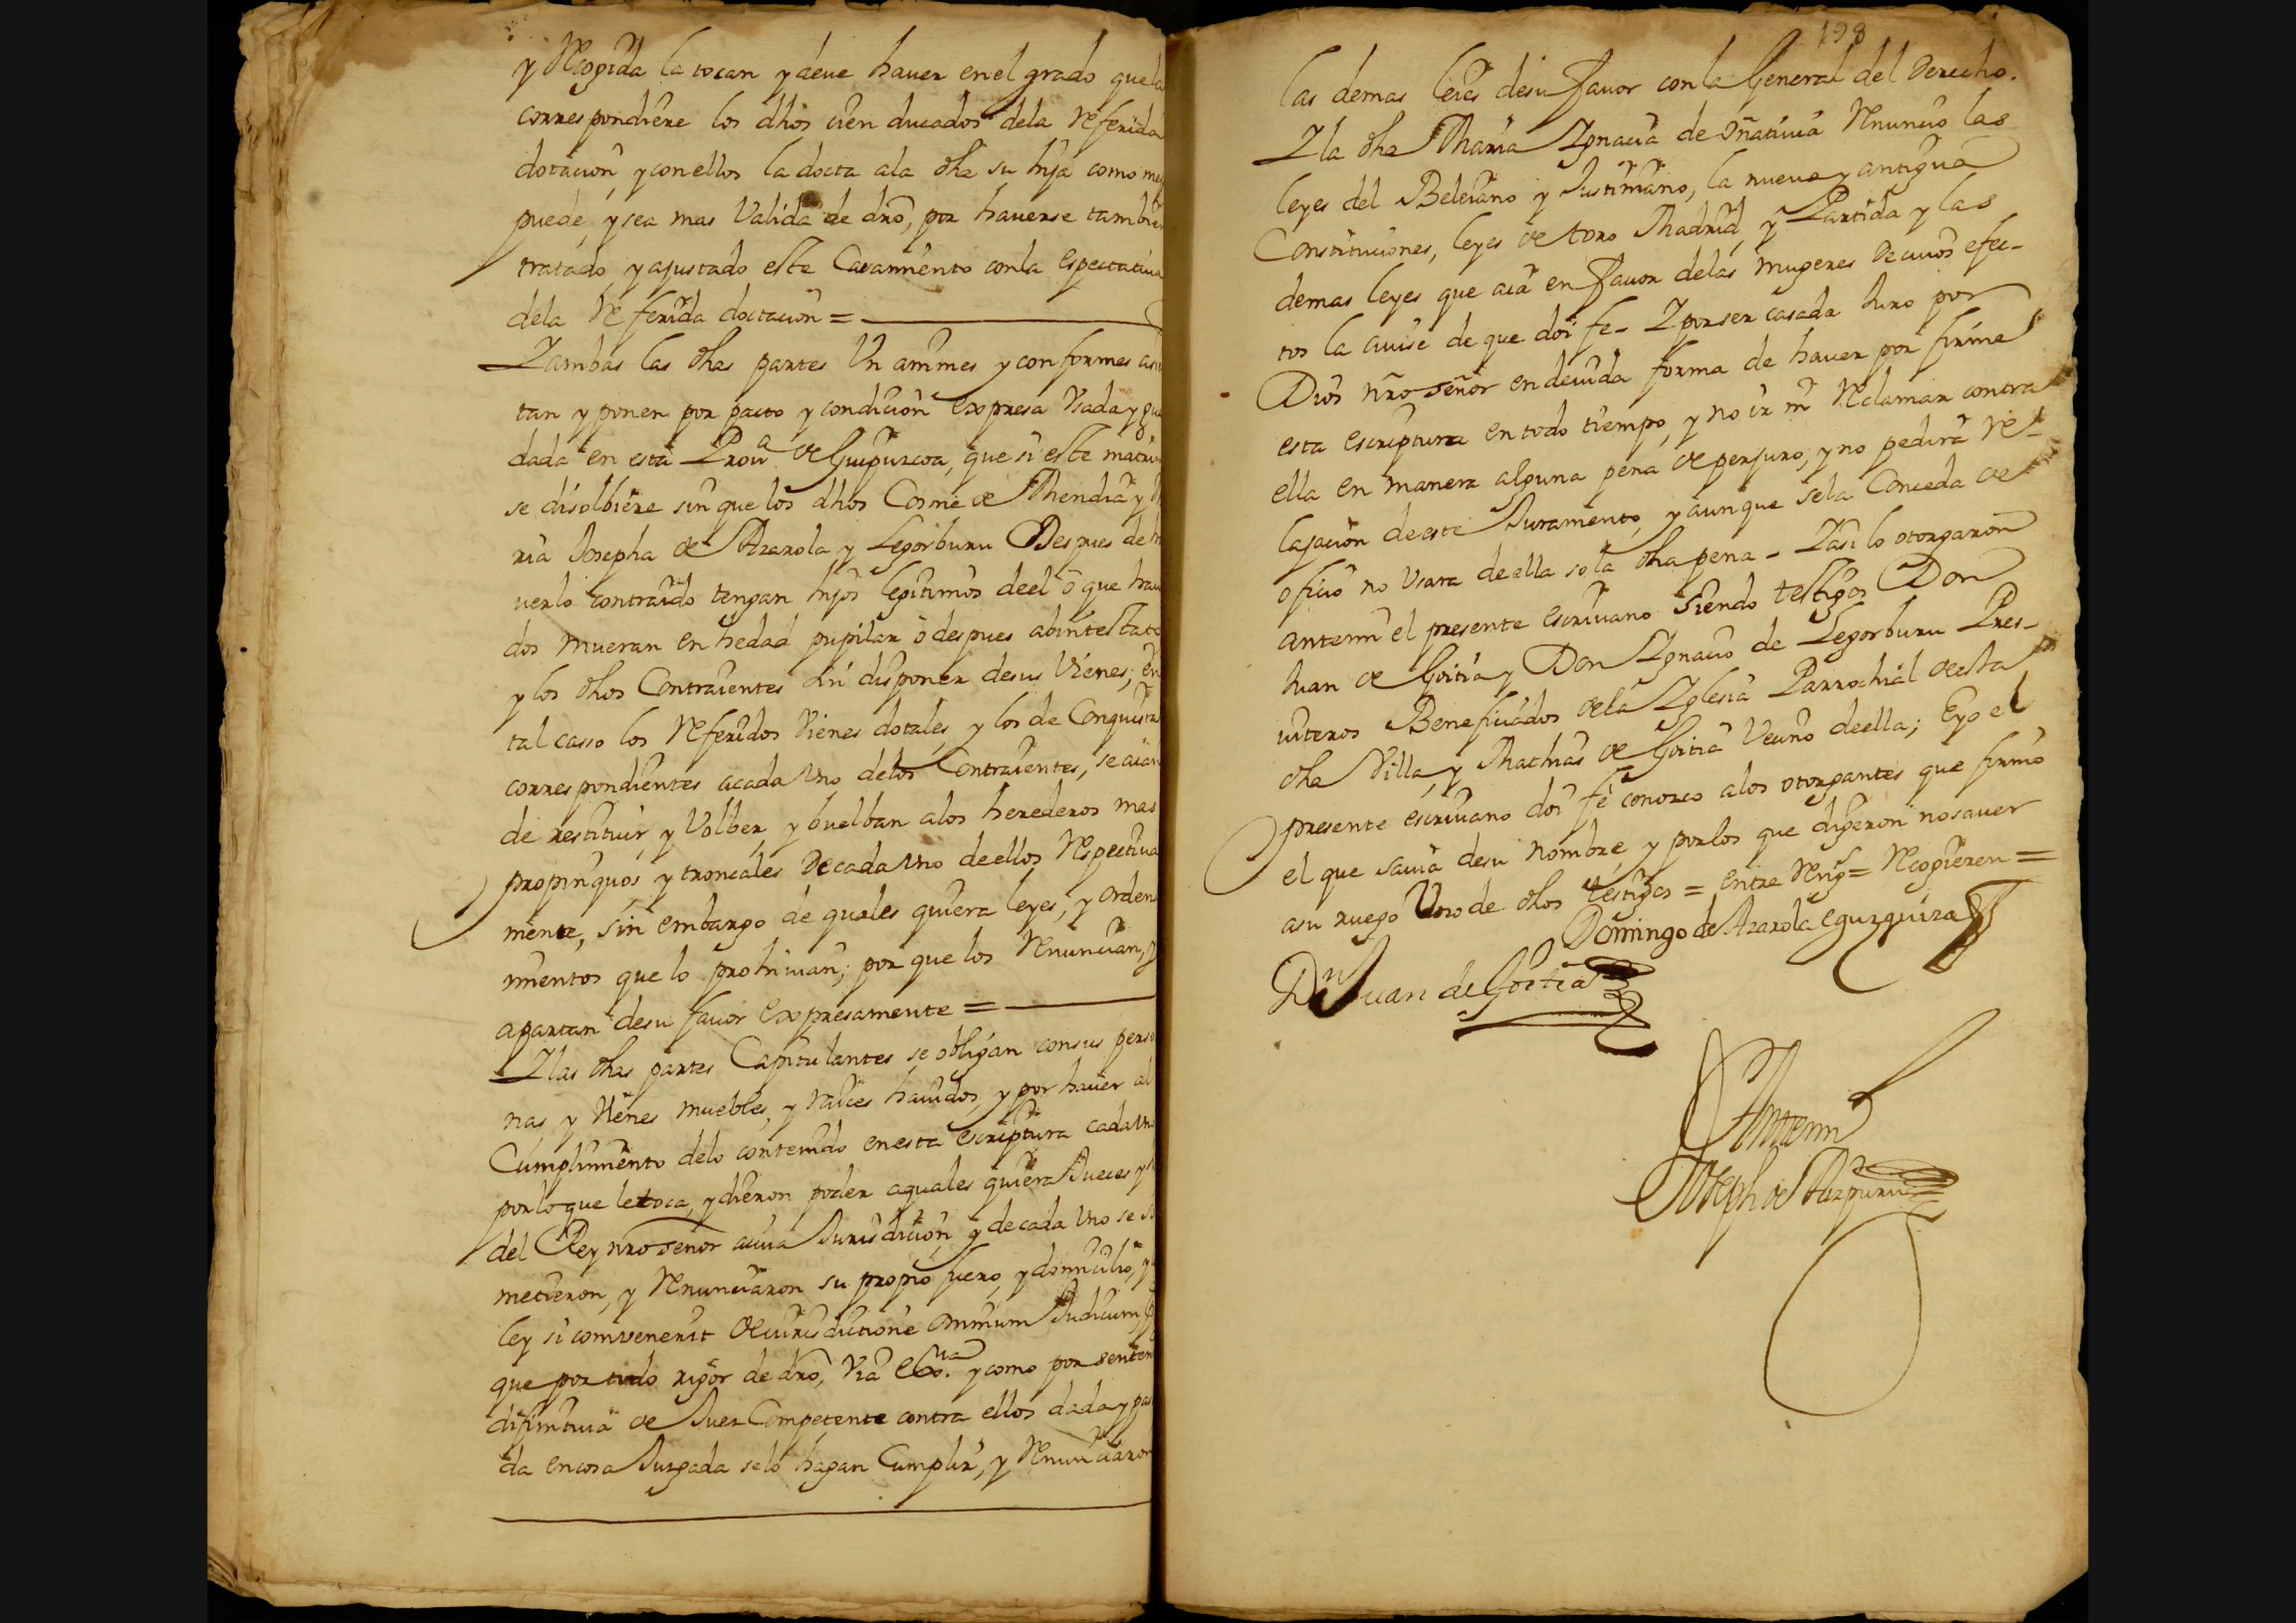 y Recogida la tocan y deve haver en el grado que la
correspondiere los dhos cien ducados dela Referida
dotacion, y con ellos la docta ala dha su hija como me
puede, y sea mas Valida de dro, por haverse tambie
tratado, y ajustado este Casamiento con la espectativa
dela Referida doctacion =
Y ambas las dhas partes Vn animes y conformes asie
tan y ponen por pacto y condicion expresa Vsada y gua
dada en esta Prou.a de Guipuzcoa, que si este matrim
se disolbiere sin que los dhos Cosme de Mendia y
ria Josepha de Azarola y Legorburu Despues de h
verlo contraido tengan hijos legitimos de el o que hau
dos mueran en hedad pupilar o despues abintestato
y los dhos Contraientes sin disponer de sus Vienes; en
tal casso los Referidos Vienes dotales, y los de Conquista
correspondientes acada Vno delos Contraientes, se aian
de restituir, y Volber, y buelban alos herederos mas
propinquos y troncales De cada Vno de ellos Respectiva
mente, sin embargo de quales quiera leyes, y orden
mientos que lo prohivan; por que los Renuncian, y
apartan de su favor expresamente =
Y las dhas partes Capitulantes se obligan con sus perso
nas, y Vienes muebles, y raices havidos, y por haver al
Cumplimiento delo contenido en esta escriptura cada Vno
por lo que le toca, y dieron poder a quales quiera Jueces y
del Rey nro señor a cuia Jurisdicion, y de cada Vno se so
metieron, y Renunciaron su propio fuero, y domicilio, y
ley si combenerit de iurisdictione omnium Judicum,
que por todo rigor de dro, Via exa.va y como por senten
difinitiva de Juez Competente contra ellos dada y pas
da en cosa Juzgada se lo hagan Cumplir, y Renunciaron
198
las demas leies de su favor con la General del Derecho.
Y la dha Maria Ygnacia de Oñativia Renuncio las
leyes del Beleiano y Justiniano, la nueva y antigua
Constituciones, leyes de toro Madrid, y Partida y las
demas leyes que aia en favor delas mugeres de cuios efec-
tos la avise de que doi fe - Y por ser casada Juro por
Dios nro señor en devida forma de haver por firme
esta escriptura en todo tiempo, y no ir ni Reclamar contra
ella en manera alguna pena de perjuro, y no pedira Re-
lajacion de este Juramento, y aunque se la Conceda de
oficio no Vsara de ella so la dha pena - Y asi lo otorgaron
ante mi el presente escrivano Siendo testigos Don
Juan de Goitia y Don Ygnacio de Legorburu Pres-
viteros Beneficiados dela Yglesia Parrochial desta
dha Villa, y Mathias de Goitia Vecino de ella; E yo el
presente escrivano doi fe conozco alos otorgantes que firmo
el que savia de su nombre, y por los que digeron no saver
a su ruego Vno de dhos testigos = entre Reng.s = Recogieren =
Domingo de Azarola eguzquiza
Dn Juan de Goitia
Ante mi
Joseph de Aizpuru